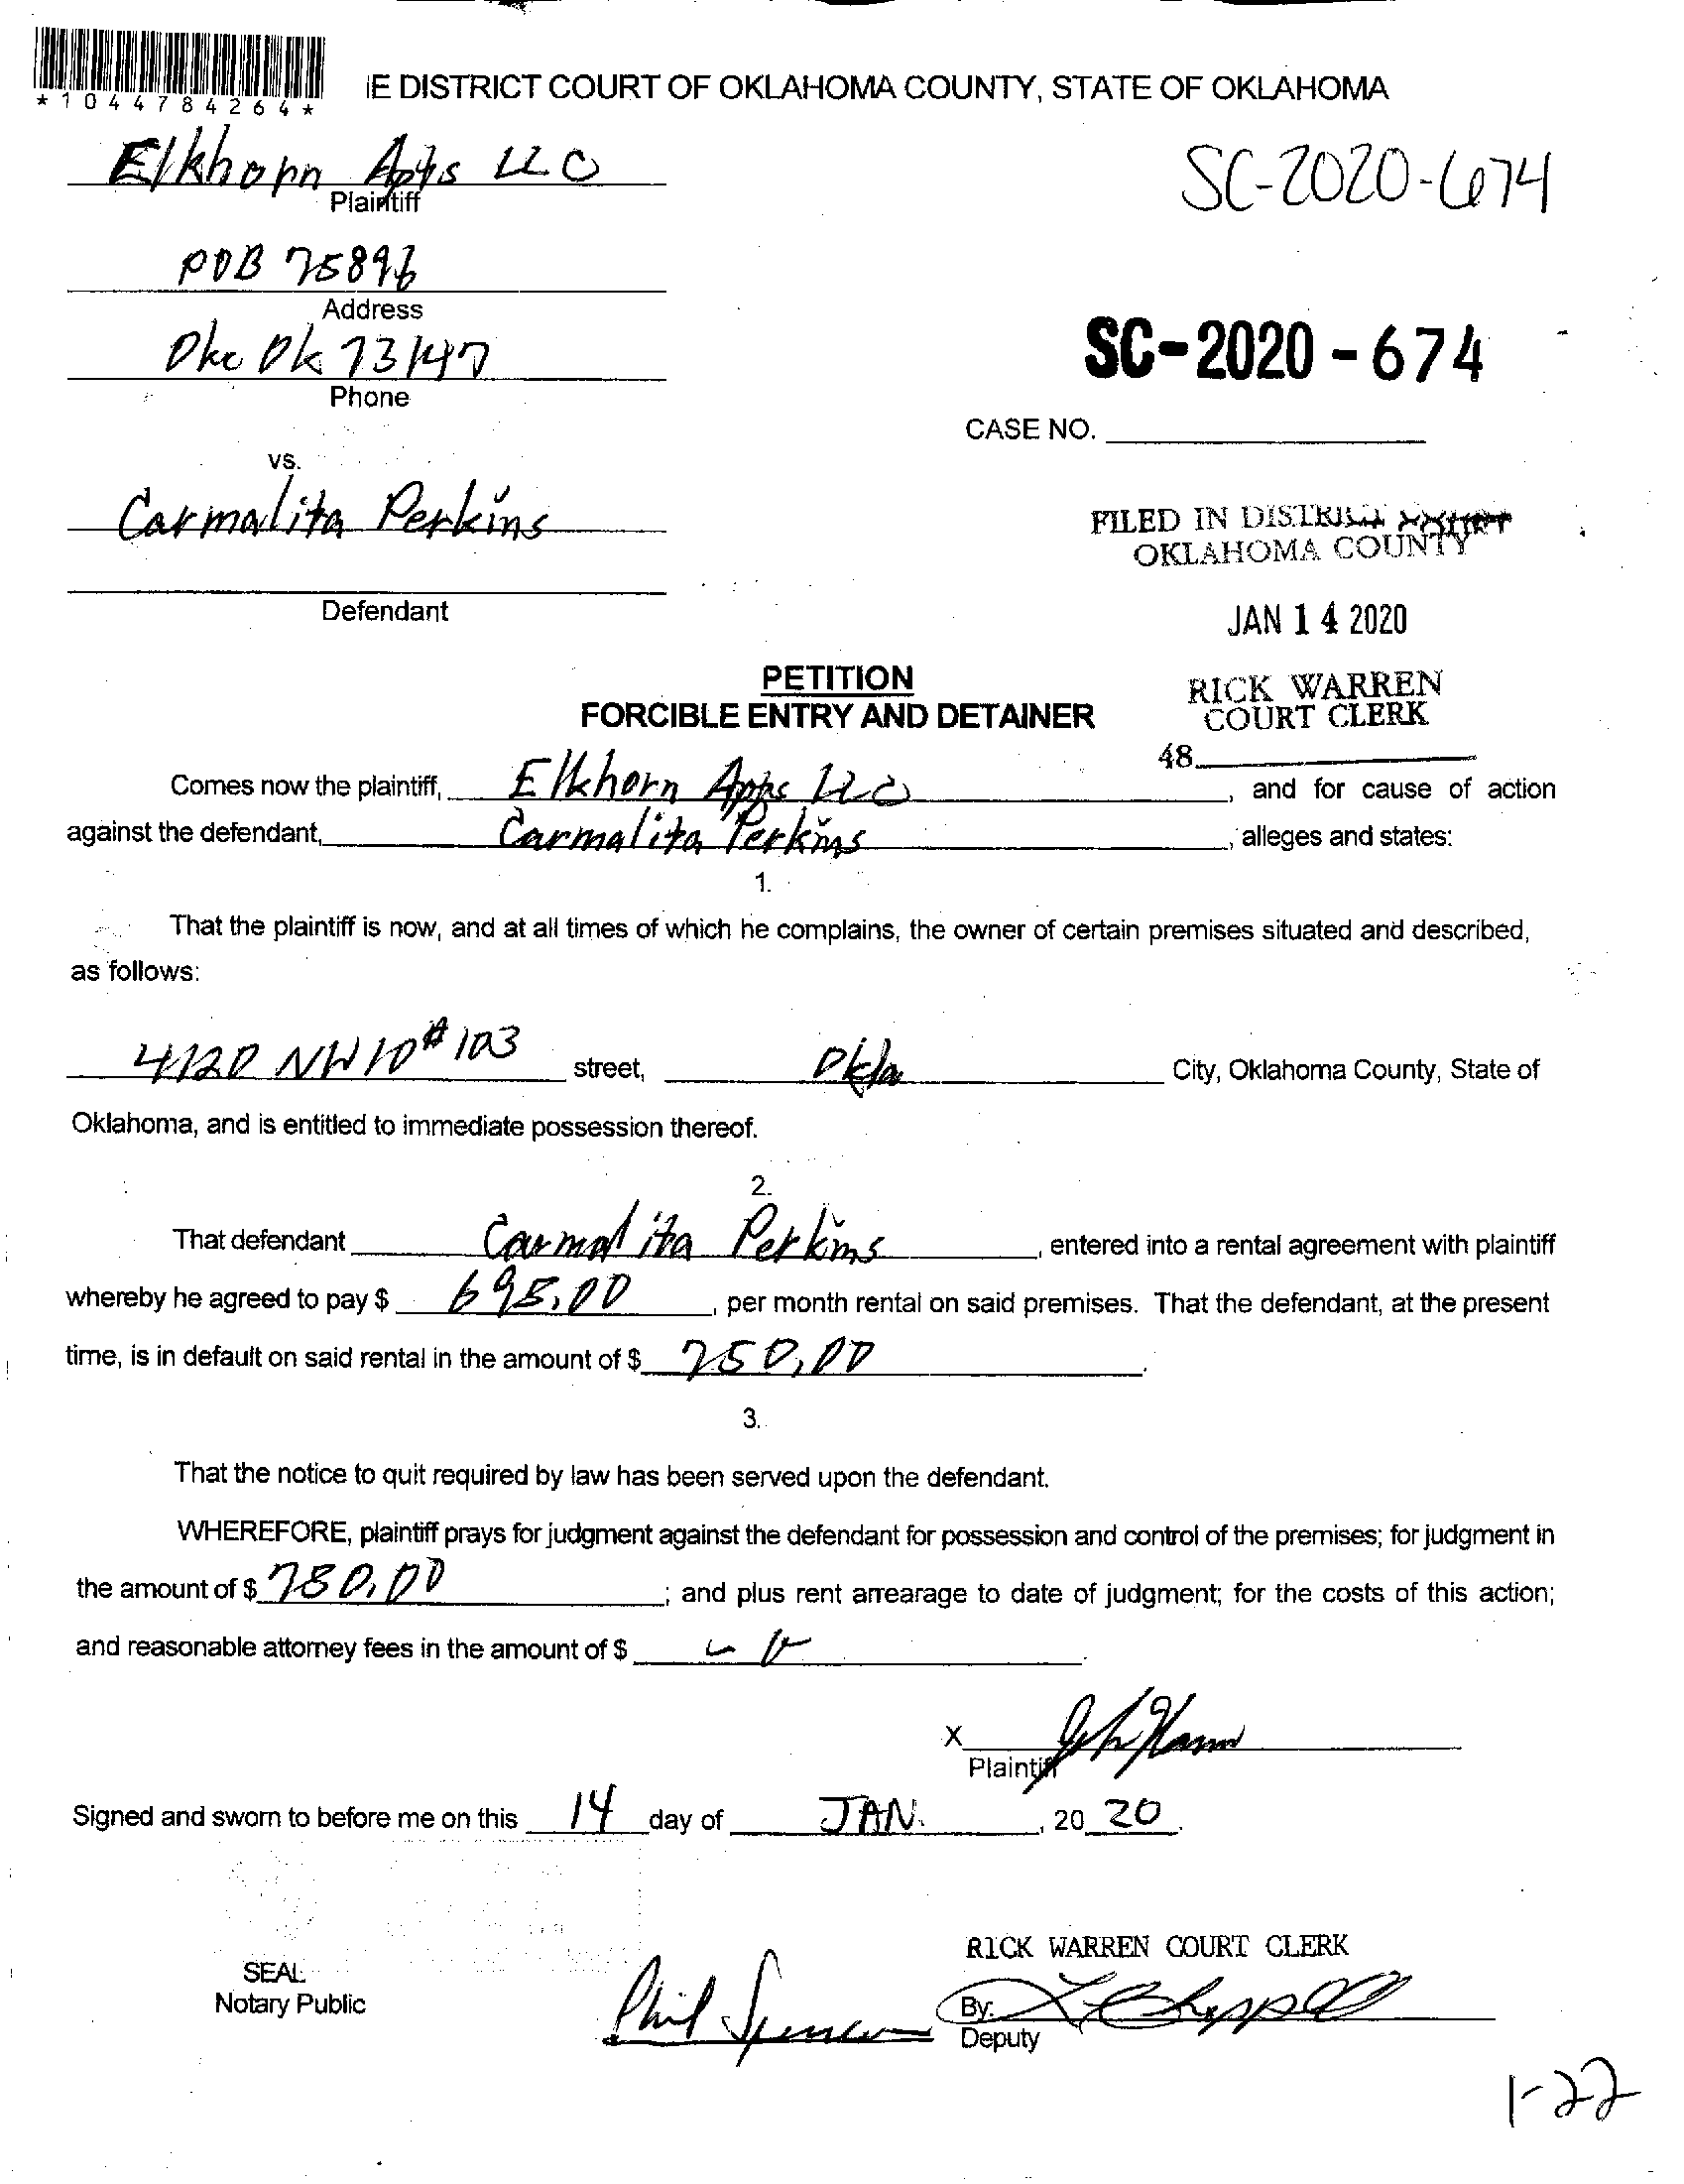 *1044784264*
IE DISTRICT COURT OF OKLAHOMA COUNTY, STATE OF OKLAHOMA
Elkhorn Apts LLC
Plaintiff
SC-2020-674
POB 75896
Address
Okc Ok 73147
Phone
SC-2020-674
CASE NO.
vs.
Carmalita Perkins
FILED IN DISTRICT COURT
OKLAHOMA COUNTY
Defendant
JAN 14 2020
PETITION
FORCIBLE ENTRY AND DETAINER
RICK WARREN
COURT CLERK
48
Comes now the plaintiff, Elkhorn Apts LLC, and for cause of action
against the defendant, Carmalita Perkins, alleges and states:
1.
That the plaintiff is now, and at all times of which he complains, the owner of certain premises situated and described,
as follows:
4120 NW 10 # 103 street, Okla City, Oklahoma County, State of
Oklahoma, and is entitled to immediate possession thereof.
2.
That defendant Carmalita Perkins, entered into a rental agreement with plaintiff
whereby he agreed to pay $ 695.00, per month rental on said premises. That the defendant, at the present
time, is in default on said rental in the amount of $ 750.00.
3.
That the notice to quit required by law has been served upon the defendant.
WHEREFORE, plaintiff prays for judgment against the defendant for possession and control of the premises; for judgment in
the amount of $ 750.00; and plus rent arrearage to date of judgment; for the costs of this action;
and reasonable attorney fees in the amount of $
X
Plaintiff
Signed and sworn to before me on this 14 day of JAN., 20 20.
RICK WARREN COURT CLERK
SEAL
Notary Public
Phil Spencer
By:
Deputy
1-22